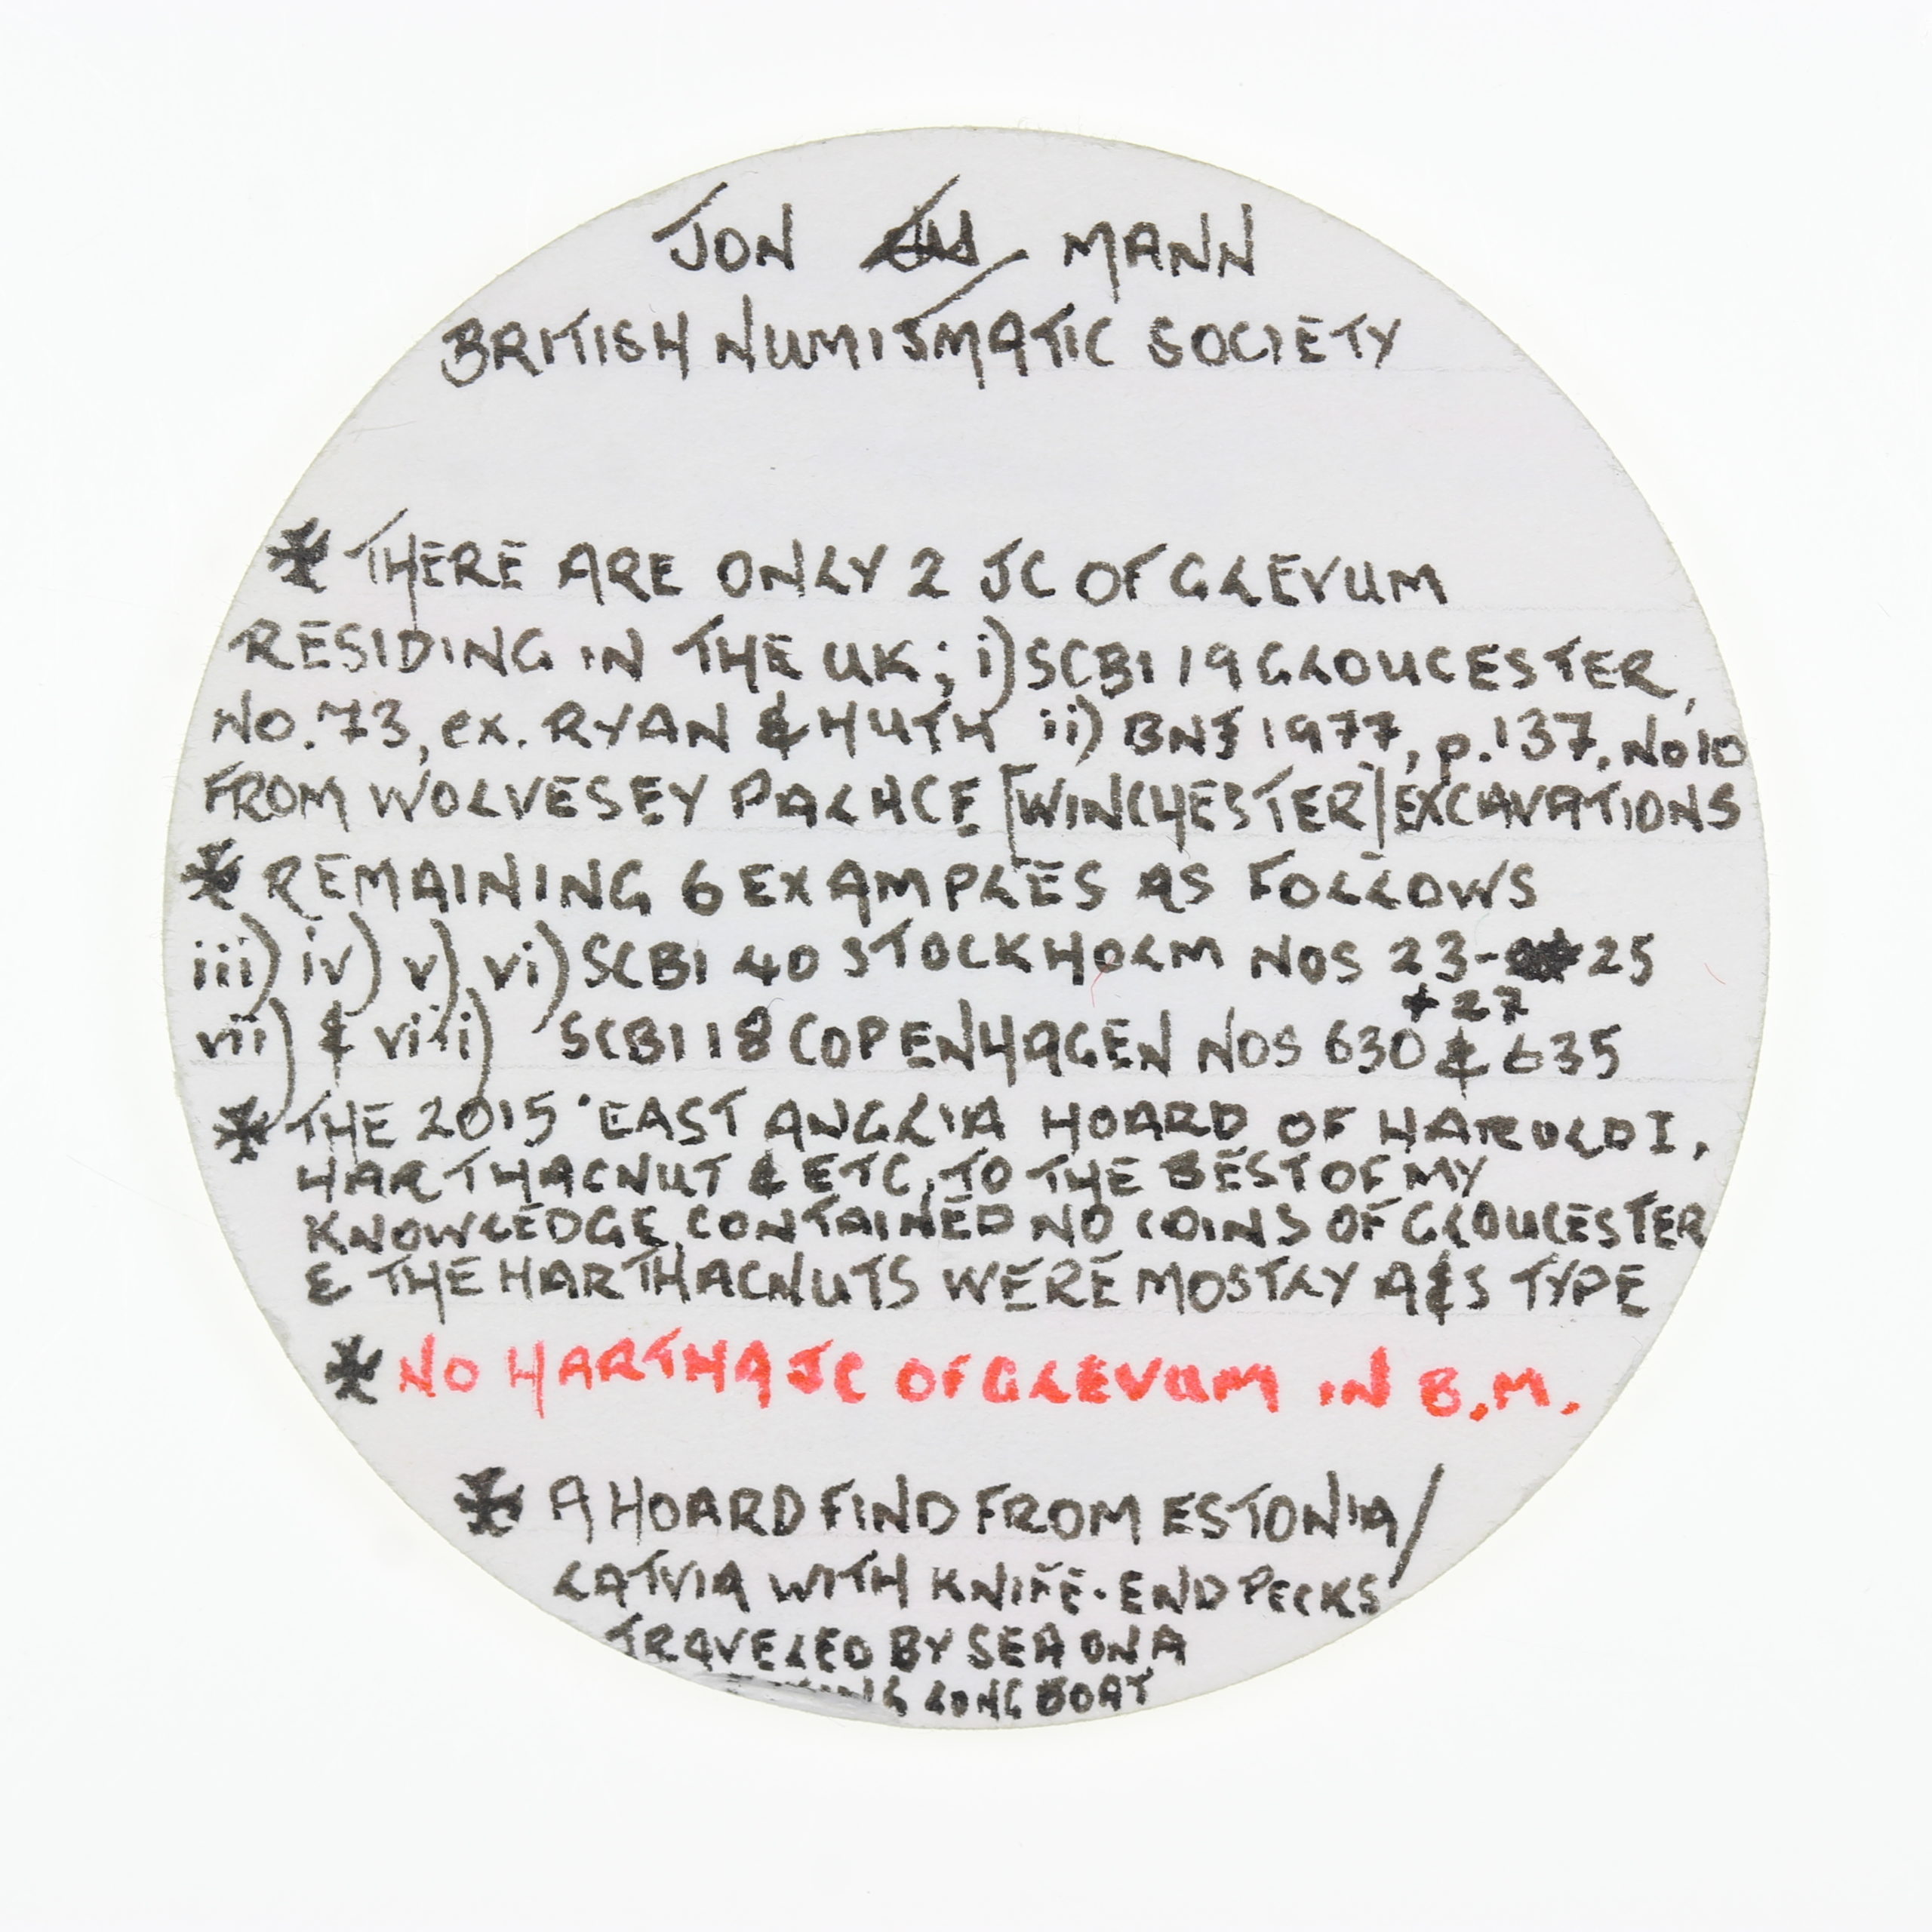 JON MANN
BRITISH NUMISMATIC SOCIETY
* THERE ARE ONLY 2 JC OF GLEVUM
RESIDING IN THE UK; i) SCBI 19 GLOUCESTER,
NO. 73, ex. RYAN & HUTH ii) BNJ 1977, p. 137, No 10
FROM WOLVESEY PALACE [WINCHESTER] EXCAVATIONS
* REMAINING 6 EXAMPLES AS FOLLOWS
iii) iv) v) vi) SCBI 40 STOCKHOLM NOS 23- 25
+ 27
vii) & viii) SCBI 18 COPENHAGEN NOS 630 & 635
* THE 2015 'EAST ANGLIA HOARD OF HAROLD I,
HARTHACNUT & ETC, TO THE BEST OF MY
KNOWLEDGE, CONTAINED NO COINS OF GLOUCESTER
& THE HARTHACNUTS WERE MOSTLY A&S TYPE
* NO HARTHA JC OF GLEVUM IN B.M.
* A HOARD FIND FROM ESTONIA/
LATVIA WITH KNIFE-END PECKS
TRAVELED BY SEA ON A
LONG BOAT